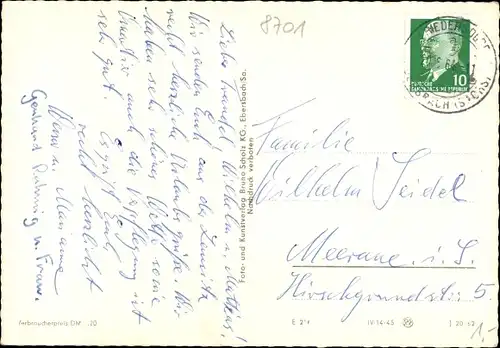 8701
Liebe Traudel, Wilhelm u. Mathias!
Wir senden Euch aus der Lausitz
recht herzliche Urlaubsgrüße. Wir
haben sehr schönes Wetter sowie
Quartier auch die Verpflegung ist
sehr gut. Es grüßt Euch
recht herzlichst
Werner u. Marianne
Gerhard u. Frau.
Foto- und Kunstverlag Bruno Scholz KG., Ebersbach/Sa.
Nachdruck verboten
10
DEUTSCHE
DEMOKRATISCHE REPUBLIK
Familie
Wilhelm Seidel
Meerane i. S.
Hirschgrundstr. 5
Verbraucherpreis DM -,20
E 214
IV-14-45
J 20 62
1.-